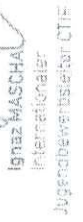 Ignaz MASCHAL
Internationaler
Jugendbewerbsleiter CTIF